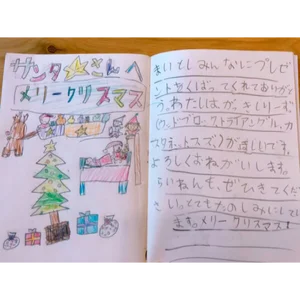 サンタさんへ
メリークリスマス
まいとしみんなにプレゼ
ントをくばってくれてありがと
う。わたしは、がっきシリーズ
(ウッドブロック、トライアングル、カ
スタネットスズ)が欲しいです。
よろしくおねがいします。
らいねんも、ぜひきてくださ
い。とてもたのしみにしてい
ます。メリークリスマス!